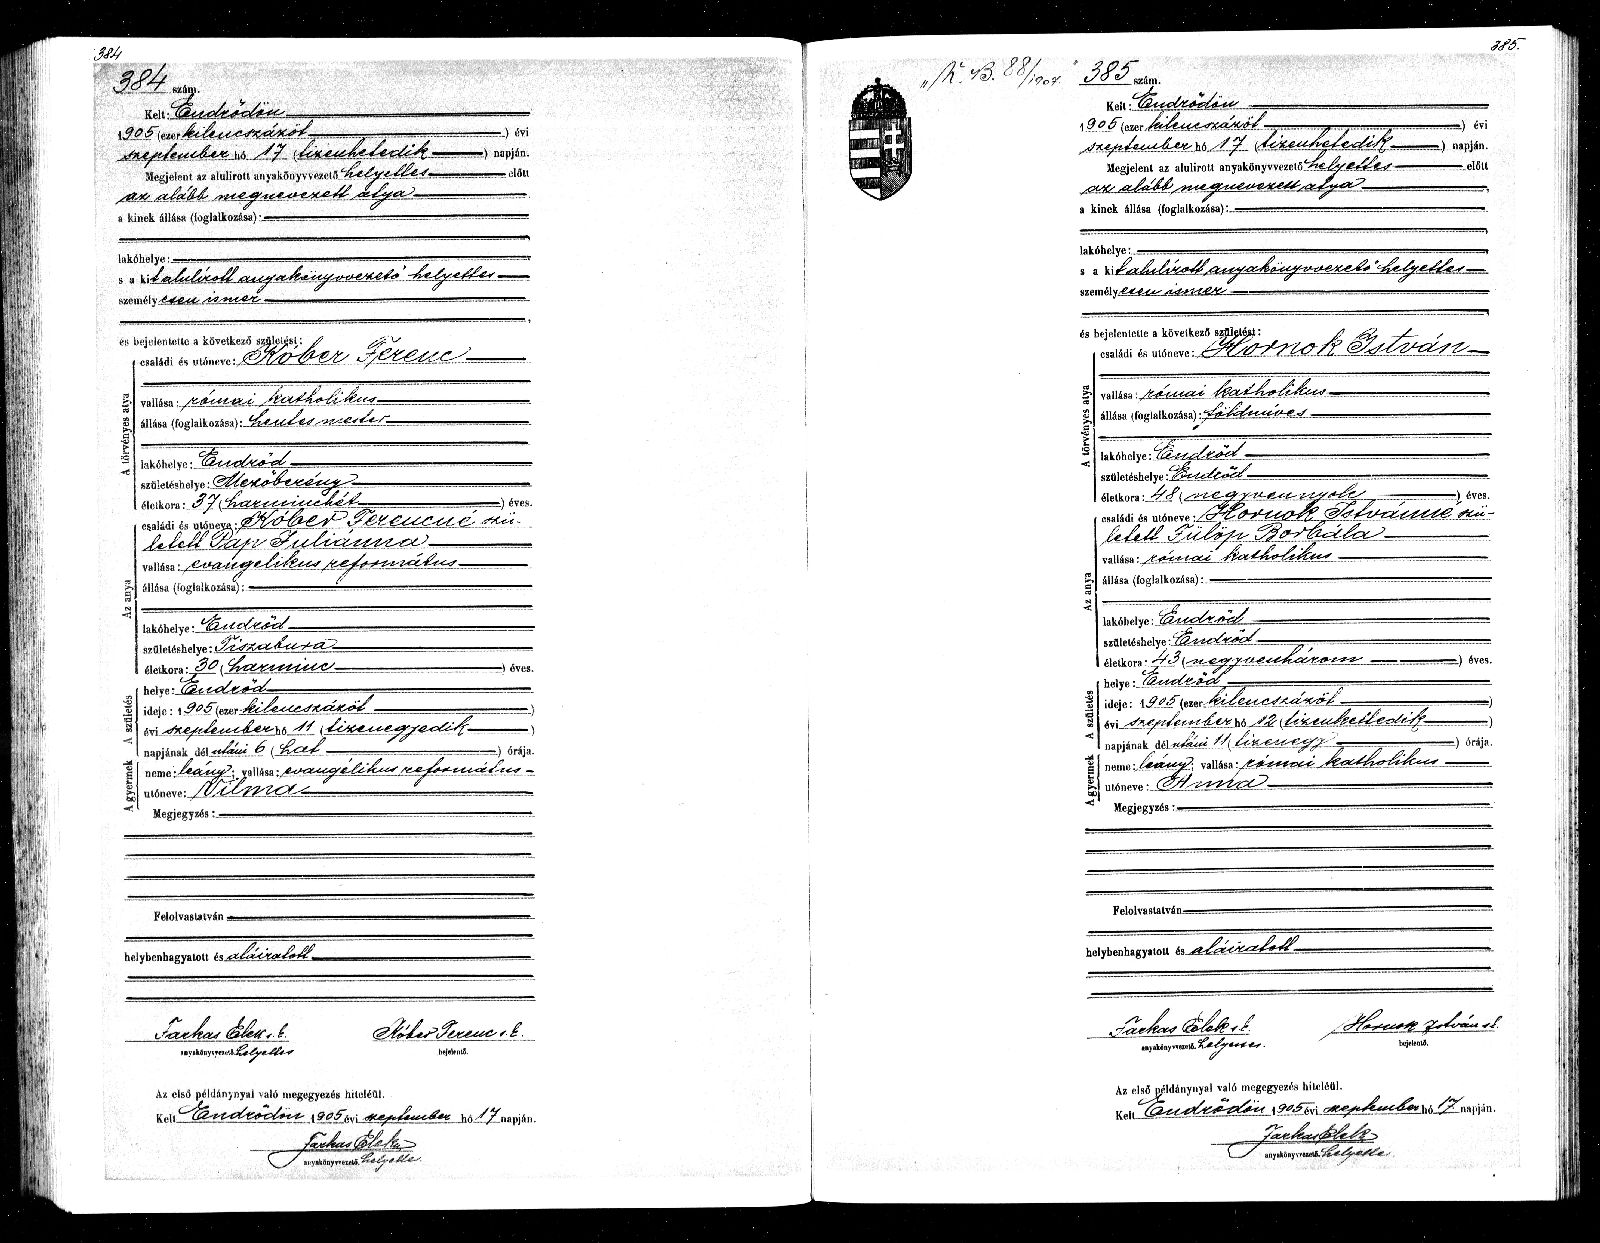 384
384 szám.
Kelt: Endrődön
1905 (ezer kilencszázöt ) évi
szeptember hó 17 (tizenhetedik ) napján.
Megjelent az alulirott anyakönyvvezető helyettes előtt
az alább megnevezett atya
a kinek állása (foglalkozása):
lakóhelye:
s a kit alulírott anyakönyvvezető helyettes
személyesen ismer
és bejelentette a következő születést:
A törvényes atya
családi és utóneve: Kóber Ferenc
vallása: római katholikus
állása (foglalkozása): hentes mester
lakóhelye: Endrőd
születéshelye: Mezőberény
életkora: 37 (harminchét ) éves.
Az anya
családi és utóneve: Kóber Ferencné szü-
letett Pap Juliánna
vallása: evangélikus református
állása (foglalkozása):
lakóhelye: Endrőd
születéshelye: Tiszabura
életkora: 30 (harminc ) éves.
A születés
helye: Endrőd
ideje: 1905 (ezer kilencszázöt )
évi szeptember hó 11 (tizenegyedik )
napjának dél utáni 6 (hat ) órája.
A gyermek
neme: leány; vallása: evangélikus református
utóneve: Vilma
Megjegyzés:
Felolvastatván
helybenhagyatott és aláiratott
Farkas Elek s. k. Kóber Ferenc s. k.
anyakönyvvezető. helyettes bejelentő.
Az első példánynyal való megegyezés hiteléül.
Kelt Endrődön 1905 évi szeptember hó 17 napján.
Farkas Elek
anyakönyvvezető. helyettes
385.
„K. B. 88/1907."
385 szám.
Kelt: Endrődön
1905 (ezer kilencszázöt ) évi
szeptember hó 17 (tizenhetedik ) napján.
Megjelent az alulirott anyakönyvvezető helyettes előtt
az alább megnevezett atya
a kinek állása (foglalkozása):
lakóhelye:
s a kit alulírott anyakönyvvezető helyettes
személyesen ismer
és bejelentette a következő születést:
A törvényes atya
családi és utóneve: Hornok István
vallása: római katholikus
állása (foglalkozása): földmíves
lakóhelye: Endrőd
születéshelye: Endrőd
életkora: 48 (negyvennyolc ) éves.
Az anya
családi és utóneve: Hornok Istvánné szü-
letett Fülöp Borbála
vallása: római katholikus
állása (foglalkozása):
lakóhelye: Endrőd
születéshelye: Endrőd
életkora: 43 (negyvenhárom ) éves.
A születés
helye: Endrőd
ideje: 1905 (ezer kilencszázöt )
évi szeptember hó 12 (tizenkettedik )
napjának dél utáni 11 (tizenegy ) órája.
A gyermek
neme: leány; vallása: római katholikus
utóneve: Anna
Megjegyzés:
Felolvastatván
helybenhagyatott és aláiratott
Farkas Elek s. k. Hornok István s. k.
anyakönyvvezető. helyettes. bejelentő.
Az első példánynyal való megegyezés hiteléül.
Kelt Endrődön 1905 évi szeptember hó 17 napján.
Farkas Elek
anyakönyvvezető. helyettes